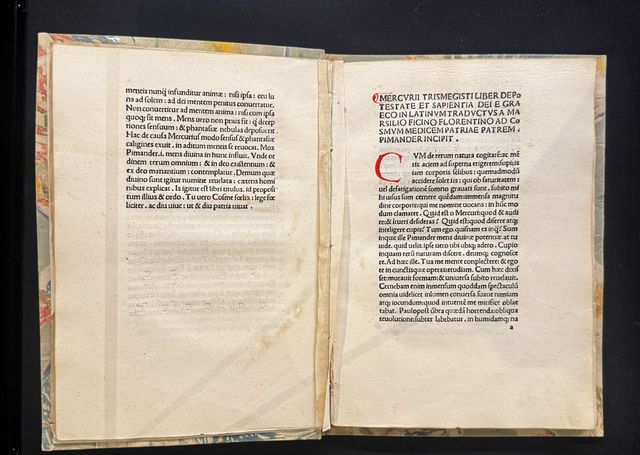 mentis nunq̃ infunditur animæ: nisi ipsa: ceu lu
na ad solem: ad dei mentem penitus conuertatur.
Non conuertitur ad mentem anima: nisi cum ipsa
quoq; sit mens. Mens uero non prius fit: q̃ decep
tiones sensuum: & phantasiæ nebulas deposuerit
Hac de causa Mercurius modo sensus & phantasiæ
caligines exuit. in aditum mentis se reuocat. Mox
Pimander. i. mens diuina in hunc influit. Vnde or
dinem rerum omnium: & in deo existentium: &
ex deo manantium: contemplatur. Demum quæ
diuino sunt igitur numine reuelata: cæteris homi
nibus explicat. Is igitur est libri titulus. id proposi
tum illius & ordo. Tu uero Cosme fœlix: lege fœ
liciter. ac diu uiue: ut & diu patria uiuat.
MERCVRII TRISMEGISTI LIBER DEPO
TESTATE ET SAPIENTIA DEI E GRA
ECO IN LATINVM TRADVCTVS A MA
RSILIO FICINO FLORENTINO AD CO
SMVM MEDICEM PATRIAE PATREM.
PIMANDER INCIPIT.
CVM de rerum natura cogitarē: ac mē
tis aciem ad superna erigerem: sopitis
iam corporis sensibus: quemadmodū
accidere solet iis: qui ob saturitatem:
uel defatigationē somno grauati sunt. subito mi
hi uisus sum cernere quēdam: immensa magnitu
dine corporis: qui me nomine uocans: in hūc mo
dum clamaret. Quid est o Mercuri: quod & audi
re: & intueri desideras? Quid est: quod discere atq;
intelligere cupis? Tum ego. quisnam es inq̃? Sum
inquit ille Pimander mens diuinæ potentiæ. at tu
uide. quid uelis. ipse uero tibi ubiq; adero. Cupio
inquam rerū naturam discere. deumq; cognosce
re. Ad hæc ille. Tua me mente complectere: & ego
te in cunctis: quæ optaueris: erudiam. Cum hæc dixis
set: mutauit formam: & uniuersa subito reuelauit.
Cernebam enim inmensum quoddam spectaculū
omnia uidelicet in lumen conuersa. suaue nimium
atq; iocundum: quod intuentē me mirifice oblec
tabat. Paulo post ūbra quædā horrenda: obliqua
reuolutione: subter labebatur. in humidamq; na
a